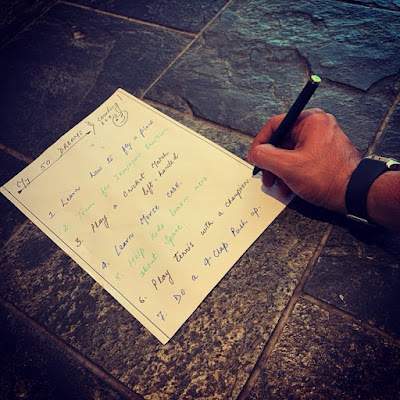 My 50 DREAMS &
counting
1. Learn how to fly a plane
2. Train for Ironman
3. Play a cricket match
left-handed
4. Learn Morse code.
5. Help kids learn more
about Space.
6. Play tennis with a champion
7. Do a 4-Clap Push up.